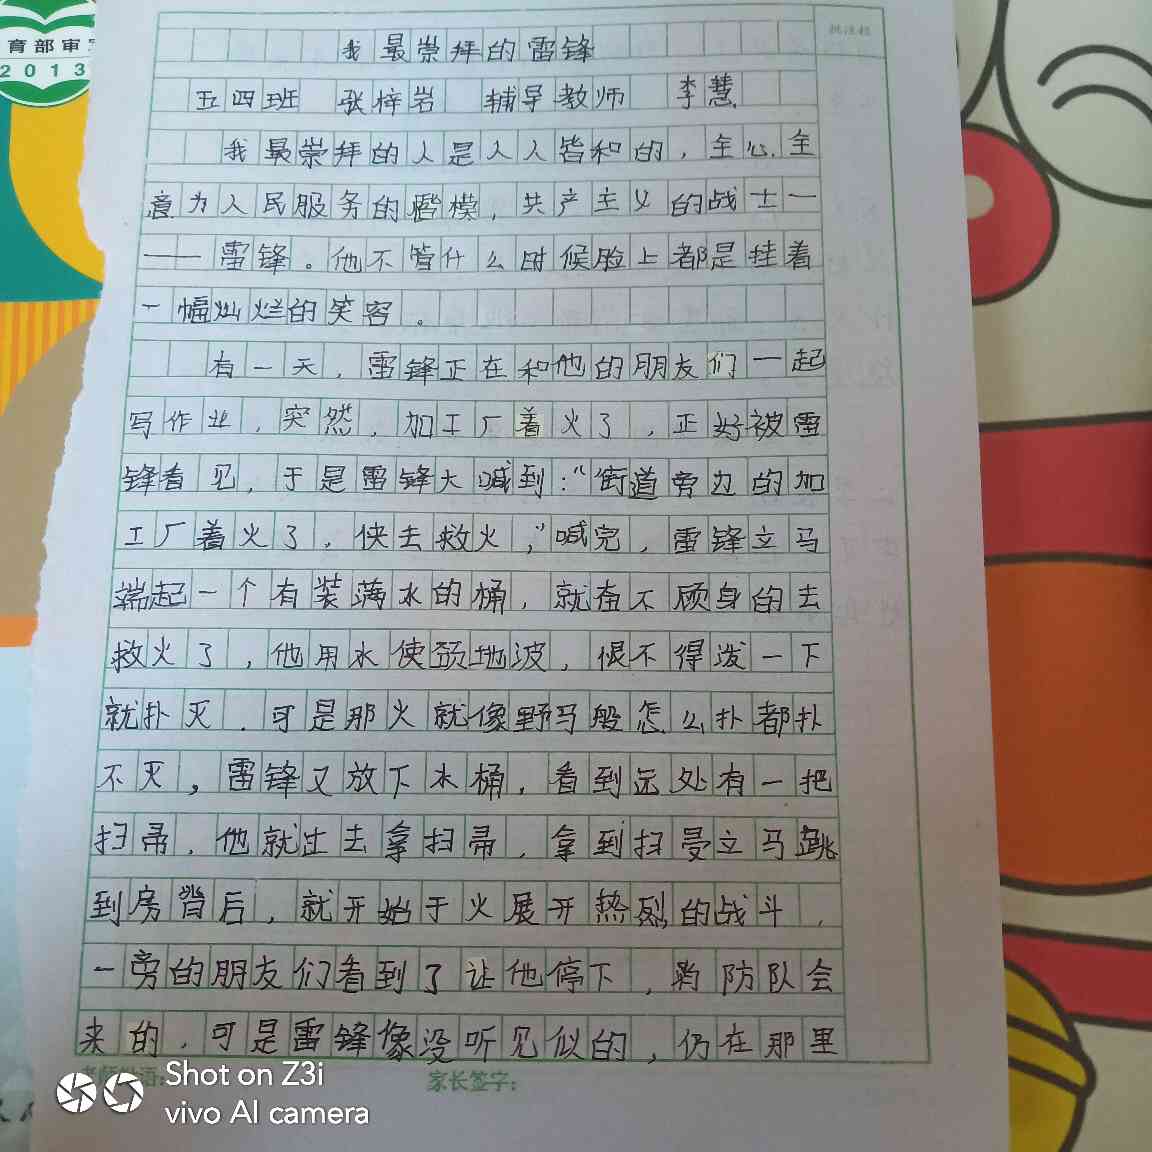 育部审定
2013
批注栏
我最崇拜的雷锋
五四班 张梓岩 辅导教师 李慧
我最崇拜的人是人人皆和的，全心全
意为人民服务的楷模，共产主义的战士一
——雷锋。他不管什么时候脸上都是挂着
一幅灿烂的笑容。
有一天，雷锋正在和他的朋友们一起
写作业，突然，加工厂着火了，正好被雷
锋看见，于是雷锋大喊到：“街道旁边的加
工厂着火了，快去救火，”喊完，雷锋立马
端起一个有装满水的桶，就奋不顾身的去
救火了，他用水使颈地波，恨不得泼一下
就扑灭．可是那火就像野马般怎么扑都扑
不灭，雷锋又放下水桶，看到远处有一把
扫帚，他就过去拿扫帚，拿到扫曼立马跳
到房背后，就开始于火展开热烈的战斗，
一旁的朋友们看到了让他停下，消防队会
来的，可是雷锋像没听见似的，仍在那里
老师批语：
家长签字：
Shot on Z3i
vivo AI camera